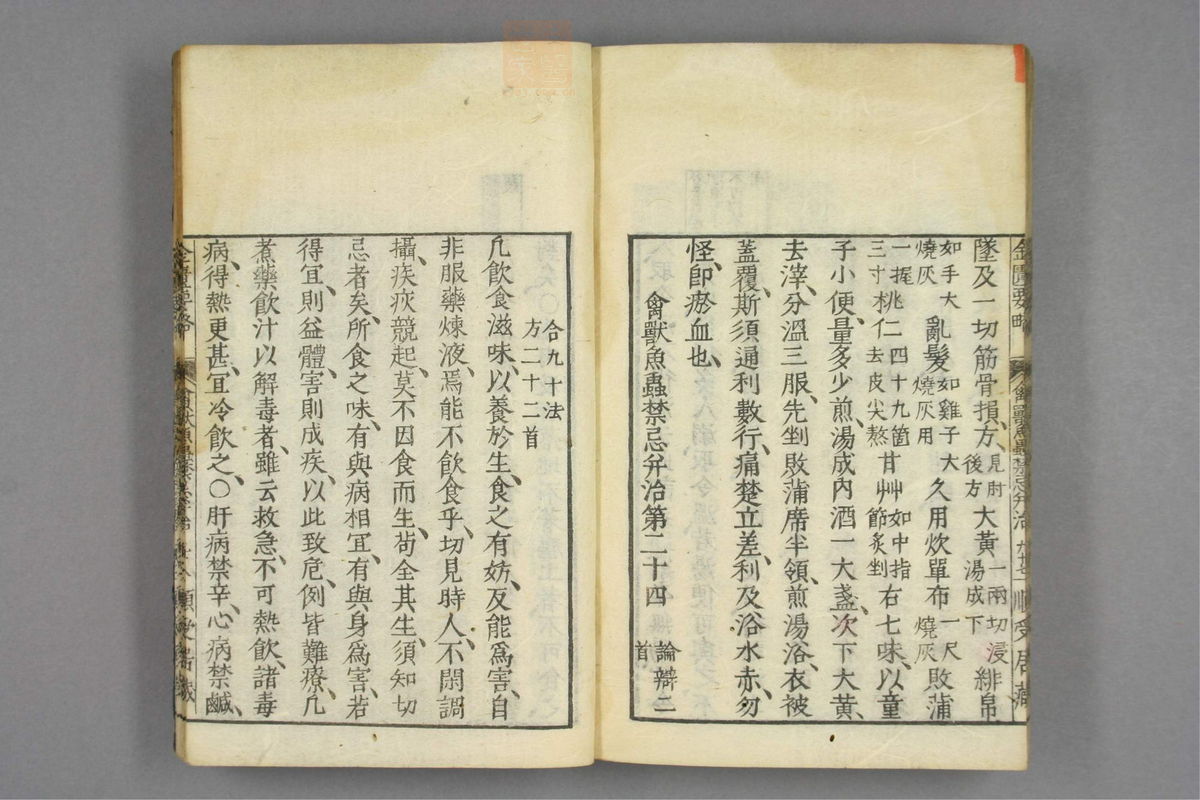 金匱要略 禽獸魚蟲禁忌并治 順受居藏
墜及一切筋骨損方、見肘後方大黃一兩切浸湯成下緋帛
如手大燒灰亂髮如雞子大燒灰用久用炊單布一尺燒灰敗蒲
一握三寸桃仁四十九箇去皮尖熬甘艸如中指節炙剉右七味、以童
子小便、量多少煎湯成、內酒一大盞、次下大黃、
去滓、分溫三服、先剉敗蒲席半領、煎湯浴、衣被
蓋覆、斯須通利數行、痛楚立差、利及浴水赤、勿
怪、即瘀血也、
禽獸魚蟲禁忌弁治第二十四 論辯二首
合九十法
方二十二首
凡飲食滋味、以養於生、食之有妨、反能爲害、自
非服藥煉液、焉能不飲食乎、切見時人、不閑調
攝、疾疢競起、莫不因食而生、苟全其生、須知切
忌者矣、所食之味、有與病相宜、有與身爲害、若
得宜、則益體、害則成疾、以此致危、例皆難療、凡
煮藥飲汁以解毒者、雖云救急、不可熱飲、諸毒
病、得熱更甚、宜冷飲之、〇肝病禁辛、心病禁鹹、